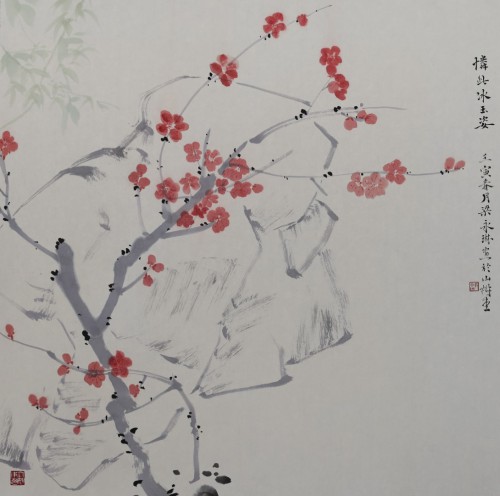 憐此冰玉姿
壬寅春月梁永琳寫於山堂